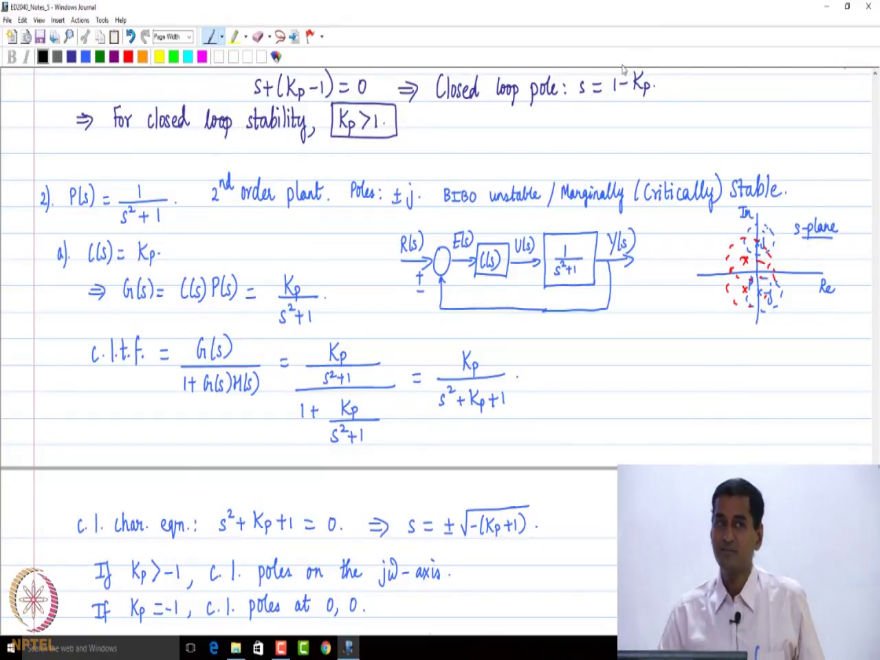 ED2040_Notes_5 - Windows Journal
File Edit View Insert Actions Tools Help
Page Width
B I
s+(Kp-1) = 0 ⇒ Closed loop pole: s = 1-Kp.
⇒ For closed loop stability, Kp>1.
2). P(s) = 1/(s²+1). 2nd order plant. Poles: ±j. BIBO unstable / Marginally (Critically) Stable.
a). C(s) = Kp.
⇒ G(s) = C(s) P(s) = Kp/(s²+1).
R(s) + - E(s) C(s) U(s) 1/(s²+1) Y(s)
Im s-plane
Re
c.l.t.f. = G(s)/(1+G(s)H(s)) = (Kp/(s²+1))/(1+Kp/(s²+1)) = Kp/(s²+Kp+1).
c.l. char. eqn.: s²+Kp+1 = 0. ⇒ s = ±√(-(Kp+1)).
If Kp>-1, c.l. poles on the jω-axis.
If Kp=-1, c.l. poles at 0, 0.
NPTEL
the web and Windows